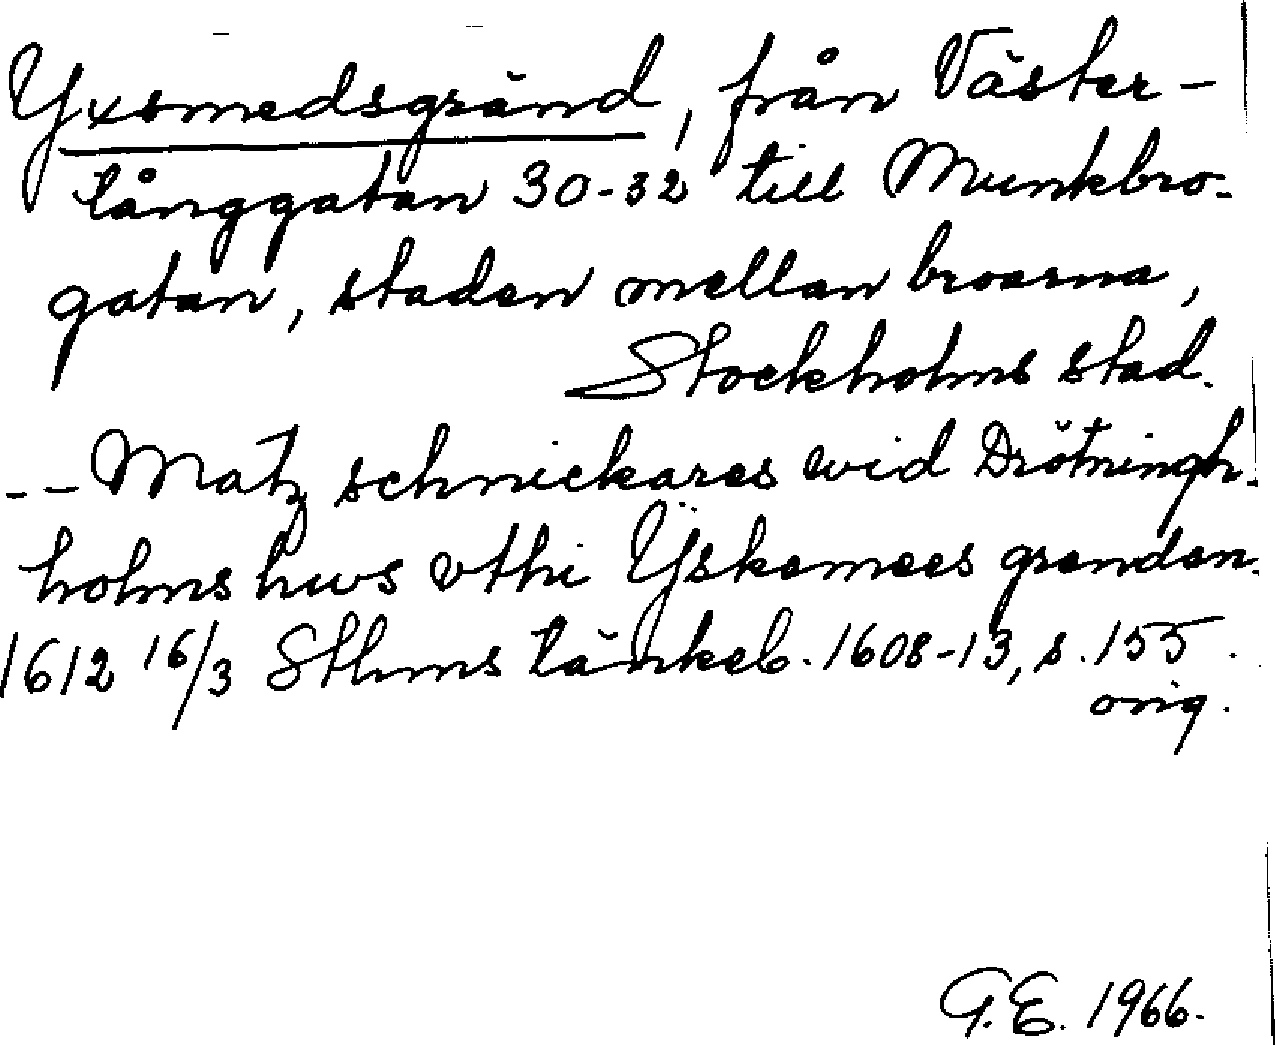 Yxsmedsgränd, från Väster-
långgatan 30-32 till Munkbro-
gatan, staden mellan broarna,
Stockholms stad.
-- Matz schnickares wid Drötningh-
holms hws vthi Ÿskemees grenden.
1612 16/3 Sthms tänkeb. 1608-13, s. 155.
orig.
G.E. 1966.